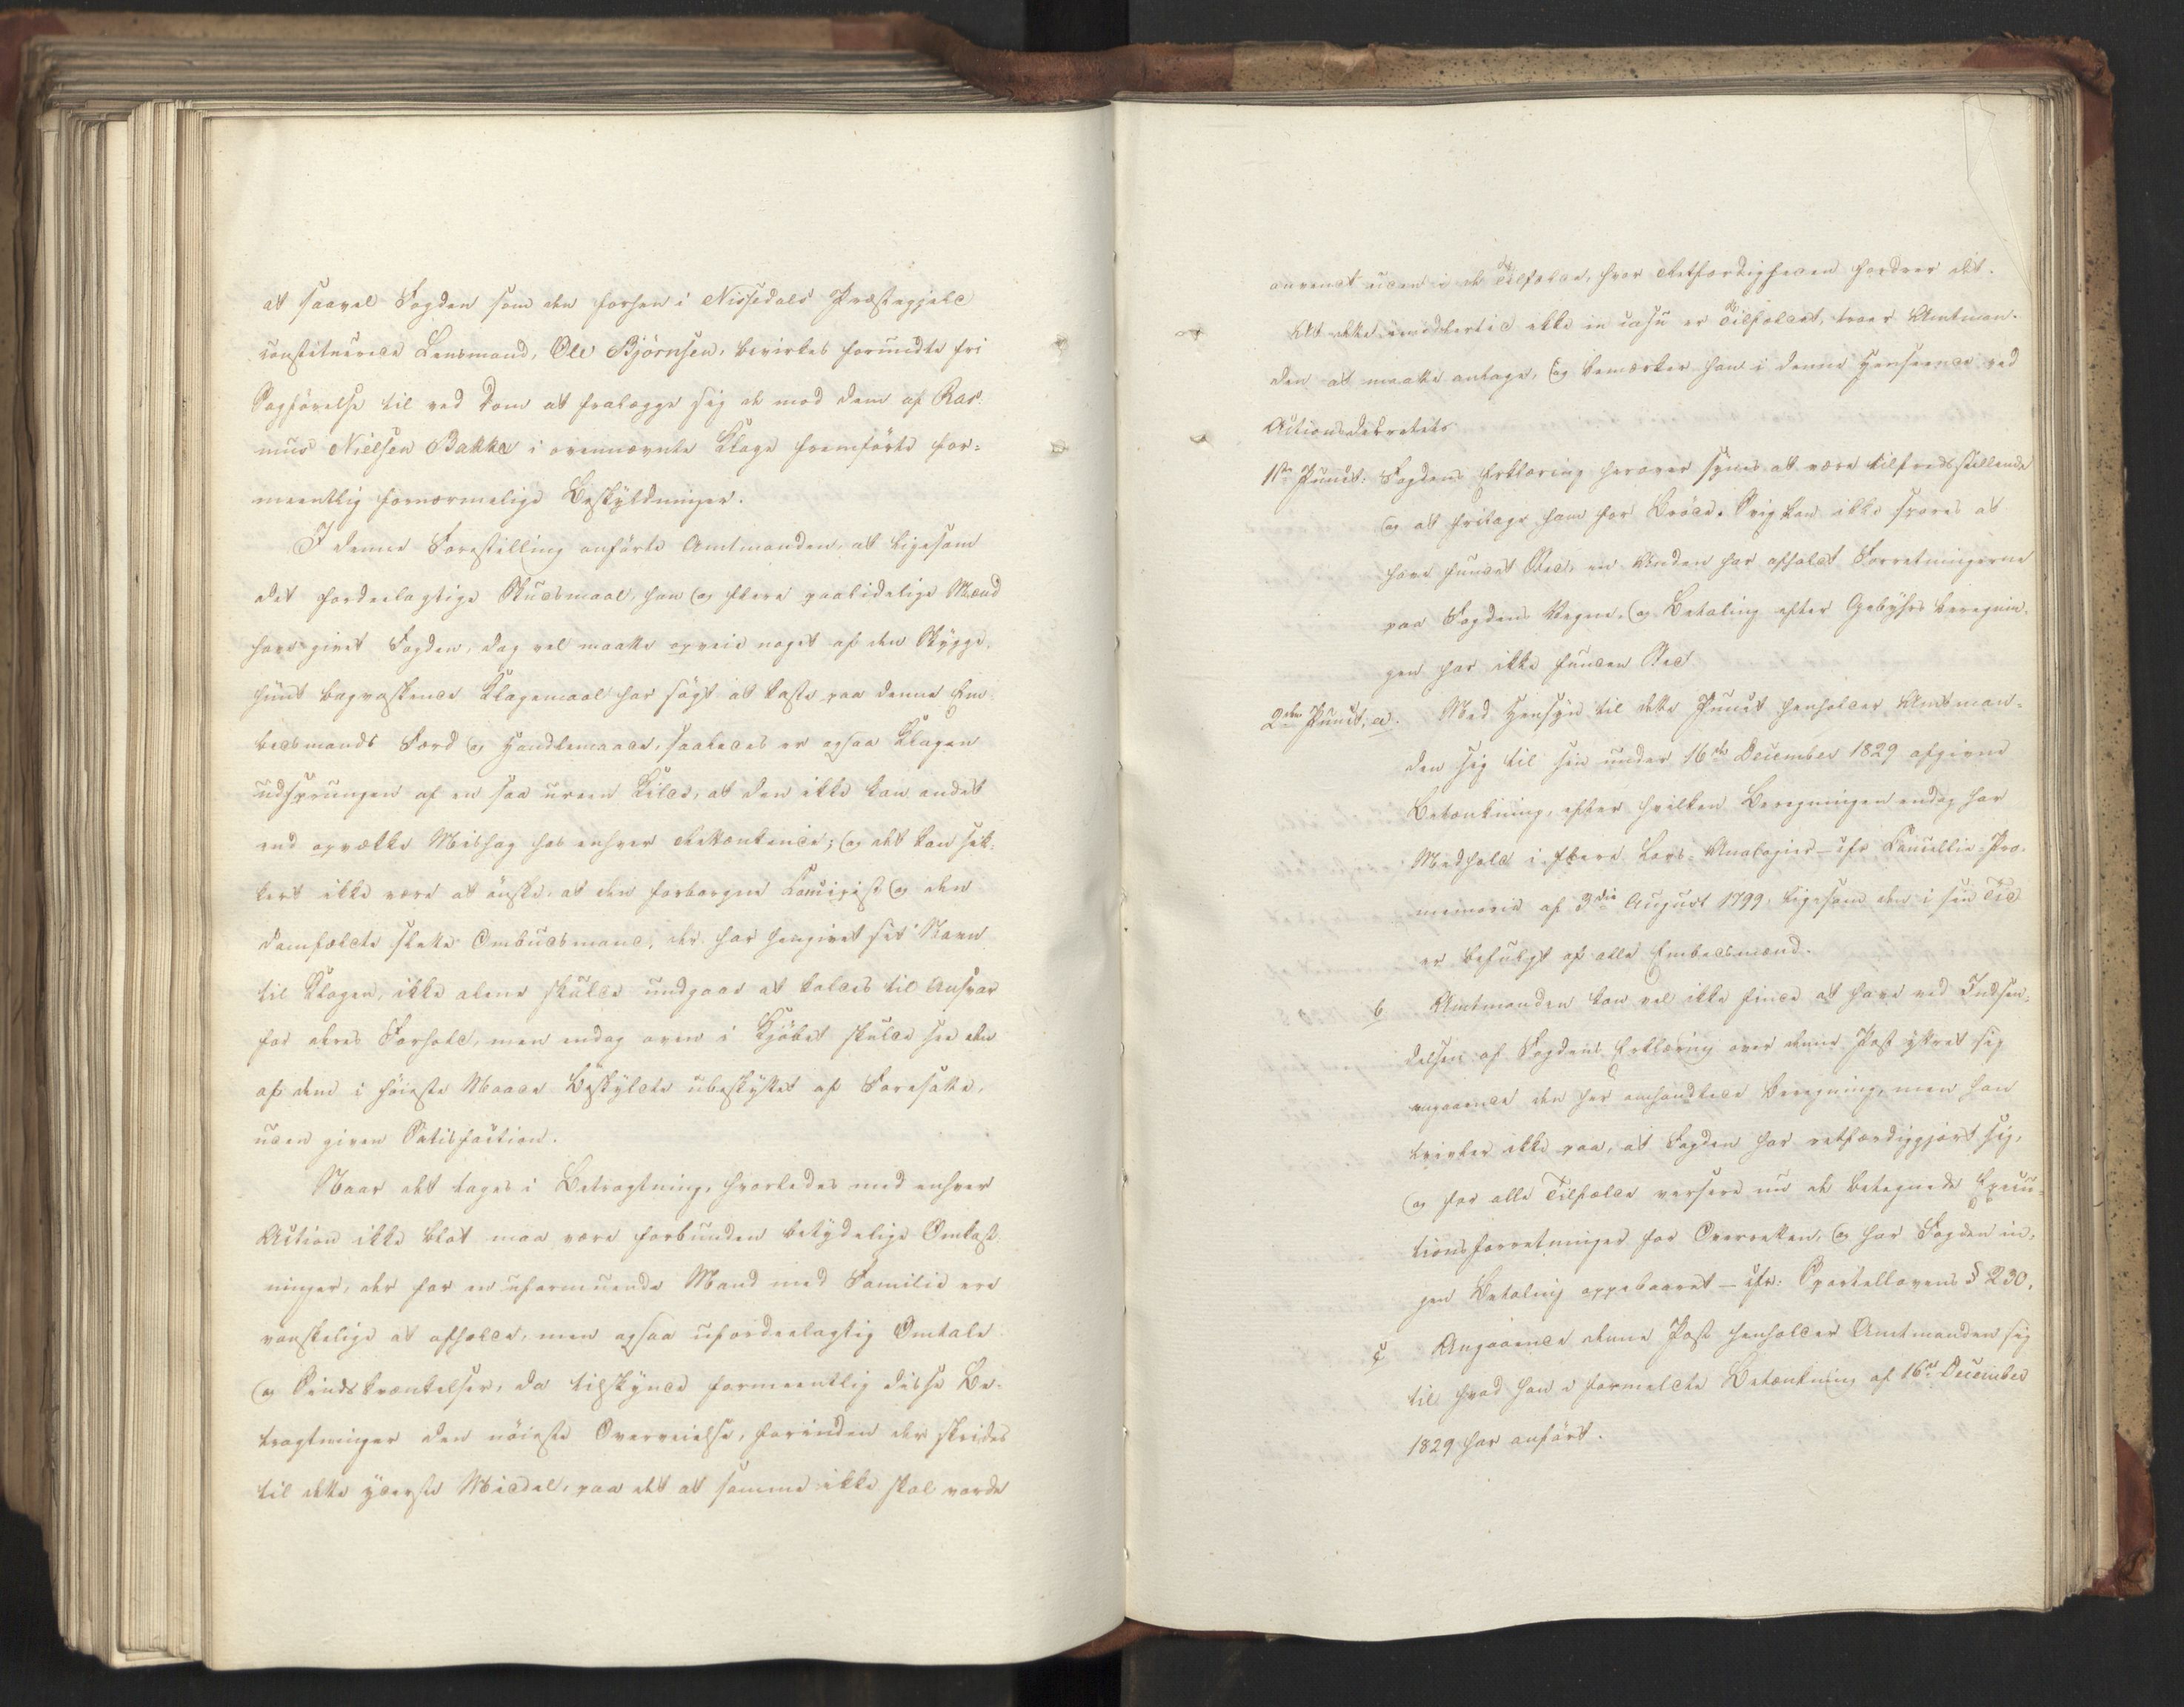 at saavel Fogden som den forhen i Nissedals Præstegjeld
constituerede Lensmand, Ole Björnsen, bevirkes formedte fri
Sagförelse til ved Dom at fralægge sig de mod dem af Ras-
mus Nielsen Bakka i ovennævnte Klage fremförte for-
meentlig fornærmelige Beskyldninger.
I denne Forestilling anförte Amtmanden, at ligesom
det fordeelagtige Skudsmaal, han og flere paalidelige Mænd
have givet Fogden, dog vel maatte opveie noget af den Skygge,
hiint bagvaskende Klagemaal har sögt at kaste paa denne Em-
bedsmands Færd og Handlemaade, saaledes er ogsaa Klagen
udsprungen af en saa ureen Kilde, at den ikke kan andet
end opvække Mishag hos enhver Rettænkende; og det kan sik-
kert ikke være at önske, at den forborgne Concipist og den
domfældte slette Ombudsmand, der har hengivet sit Navn
til Klagen, ikke alene skulde undgaae at kaldes til Ansvar
for deres Forhold, men endog oven i Kjöbet skulde see den
af dem i höieste Maade Beskyldte ubeskyttet af Foresatte,
uden given Satisfaction.
Naar det tages i Betragtning, hvorledes med enhver
Action ikke blot maa være forbunden betydelige Omkost-
ninger, der for en uformuende Mand med Familie ere
vanskelige at afholde, men ogsaa ufordeelagtig Omtale
og Sindskrænkelser, da tilskynde formeentlig disse Be-
tragtninger den nöieste Overveielse, forinden der skrides
til dette yderste Middel, paa det at samme ikke skal vorde
anvendt uden i de Tilfælde, hvor Retfærdigheden fordrer det.
At dette imidlertid ikke in casu er Tilfældet, troer Amtman-
den at maatte antage, og bemærker han i denne Henseende ved
Actionsdekretets
1ste Punct: Fogdens Erklæring herover synes at være tilfredsstillende
og at fritage ham for Bröde. Svig kan ikke spores at
have fundet Sted, en Anden har afholdt Forretningerne
paa Fogdens Vegne, og Betaling efter Gebyhrs beregnin-
gen har ikke funden Sted
2den Punct; a. Med Hensyn til dette Punct henholder Amtman-
den sig til sin under 16de December 1829 afgivne
Betænkning, efter hvilken Beregningen endog har
Medhold i flere Lov-Analogier – cfr Cancellie-Pro-
memorie af 3die August 1799, ligesom den i sin Tid
er befulgt af alle Embedsmænd.
b Amtmanden kan vel ikke finde at have ved Indsen-
delsen af Fogdens Erklæring over denne Post yttret sig
angaaende den her omhandlede Beregning, men han
tvivler ikke paa, at Fogden har retfærdiggjort sig,
og for alle Tilfælde versere nu de betegnede Execu-
tionsforretninger for Overretten, og har Fogden in-
gen Betaling oppebaaret – cfr: Sportellovens § 230,
c Angaaende denne Post henholder Amtmanden sig
til, hvad han i formeldte Betænkning af 16de December
1829 har anfört.